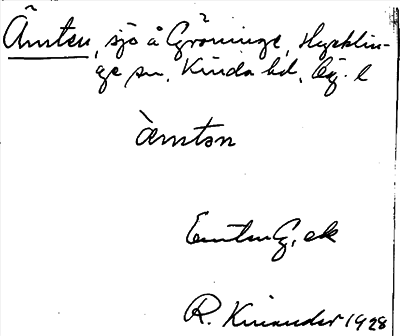 Ämten, sjö å Gröninge, Hycklin-
ge sn, Kinda hd, Ög. l
àmtən
Emten G. ek
R. Kinander 1928